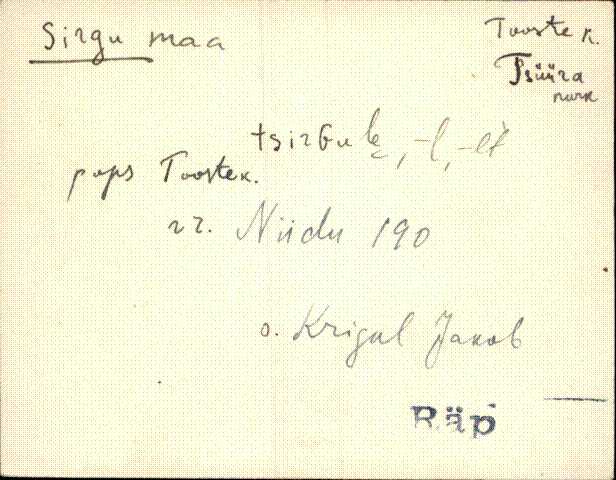 Sirgu maa
Tooste k.
Tsüüra
nurk
tsirgulE, -l, -lt
pops Tooste k.
rr. Niidu 190
o. Krigul Jakob
Räp